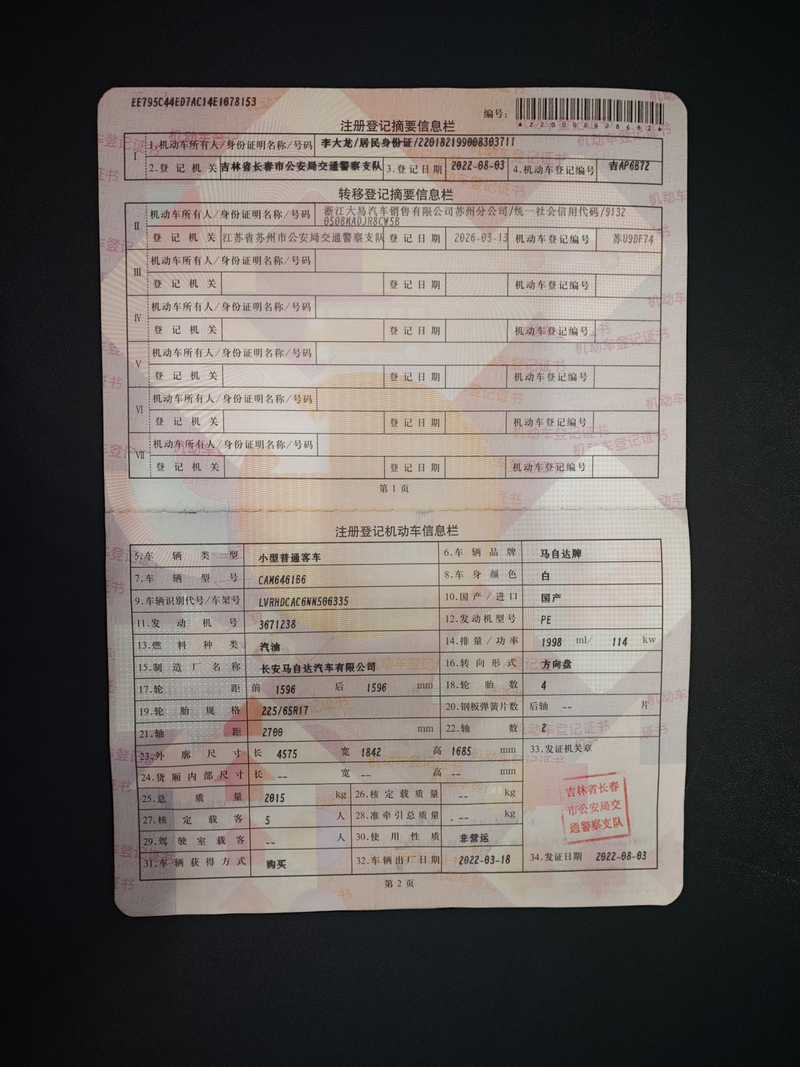 EE795C44ED7AC14E1078153
编号:
注册登记摘要信息栏
Ⅰ 1.机动车所有人/身份证明名称/号码 李大龙/居民身份证/220182199008303711
2.登记机关 吉林省长春市公安局交通警察支队 3.登记日期 2022-08-03 4.机动车登记编号 吉AP6B72
转移登记摘要信息栏
Ⅱ 机动车所有人/身份证明名称/号码 浙江大易汽车销售有限公司苏州分公司/统一社会信用代码/9132
0508MADJR8CW5B
登记机关 江苏省苏州市公安局交通警察支队 登记日期 2026-03-13 机动车登记编号 苏U9DF74
Ⅲ 机动车所有人/身份证明名称/号码
登记机关 登记日期 机动车登记编号
Ⅳ 机动车所有人/身份证明名称/号码
登记机关 登记日期 机动车登记编号
Ⅴ 机动车所有人/身份证明名称/号码
登记机关 登记日期 机动车登记编号
Ⅵ 机动车所有人/身份证明名称/号码
登记机关 登记日期 机动车登记编号
Ⅶ 机动车所有人/身份证明名称/号码
登记机关 登记日期 机动车登记编号
第1页
注册登记机动车信息栏
5.车辆类型 小型普通客车 6.车辆品牌 马自达牌
7.车辆型号 CAM6461B6 8.车身颜色 白
9.车辆识别代号/车架号 LVRHDCAC6NN506335 10.国产/进口 国产
11.发动机号 3671238 12.发动机型号 PE
13.燃料种类 汽油 14.排量/功率 1998 ml/ 114 kw
15.制造厂名称 长安马自达汽车有限公司 16.转向形式 方向盘
17.轮距 前 1596 后 1596 mm 18.轮胎数 4
19.轮胎规格 225/65R17 20.钢板弹簧片数 后轴 -- 片
21.轴距 2700 mm 22.轴数 2
23.外廓尺寸 长 4575 宽 1842 高 1685 mm 33.发证机关章
24.货厢内部尺寸 长 -- 宽 -- 高 -- mm
25.总质量 2015 kg 26.核定载质量 -- kg
27.核定载客 5 人 28.准牵引总质量 -- kg
29.驾驶室载客 -- 人 30.使用性质 非营运
吉林省长春
市公安局交
通警察支队
31.车辆获得方式 购买 32.车辆出厂日期 2022-03-18 34.发证日期 2022-08-03
第2页